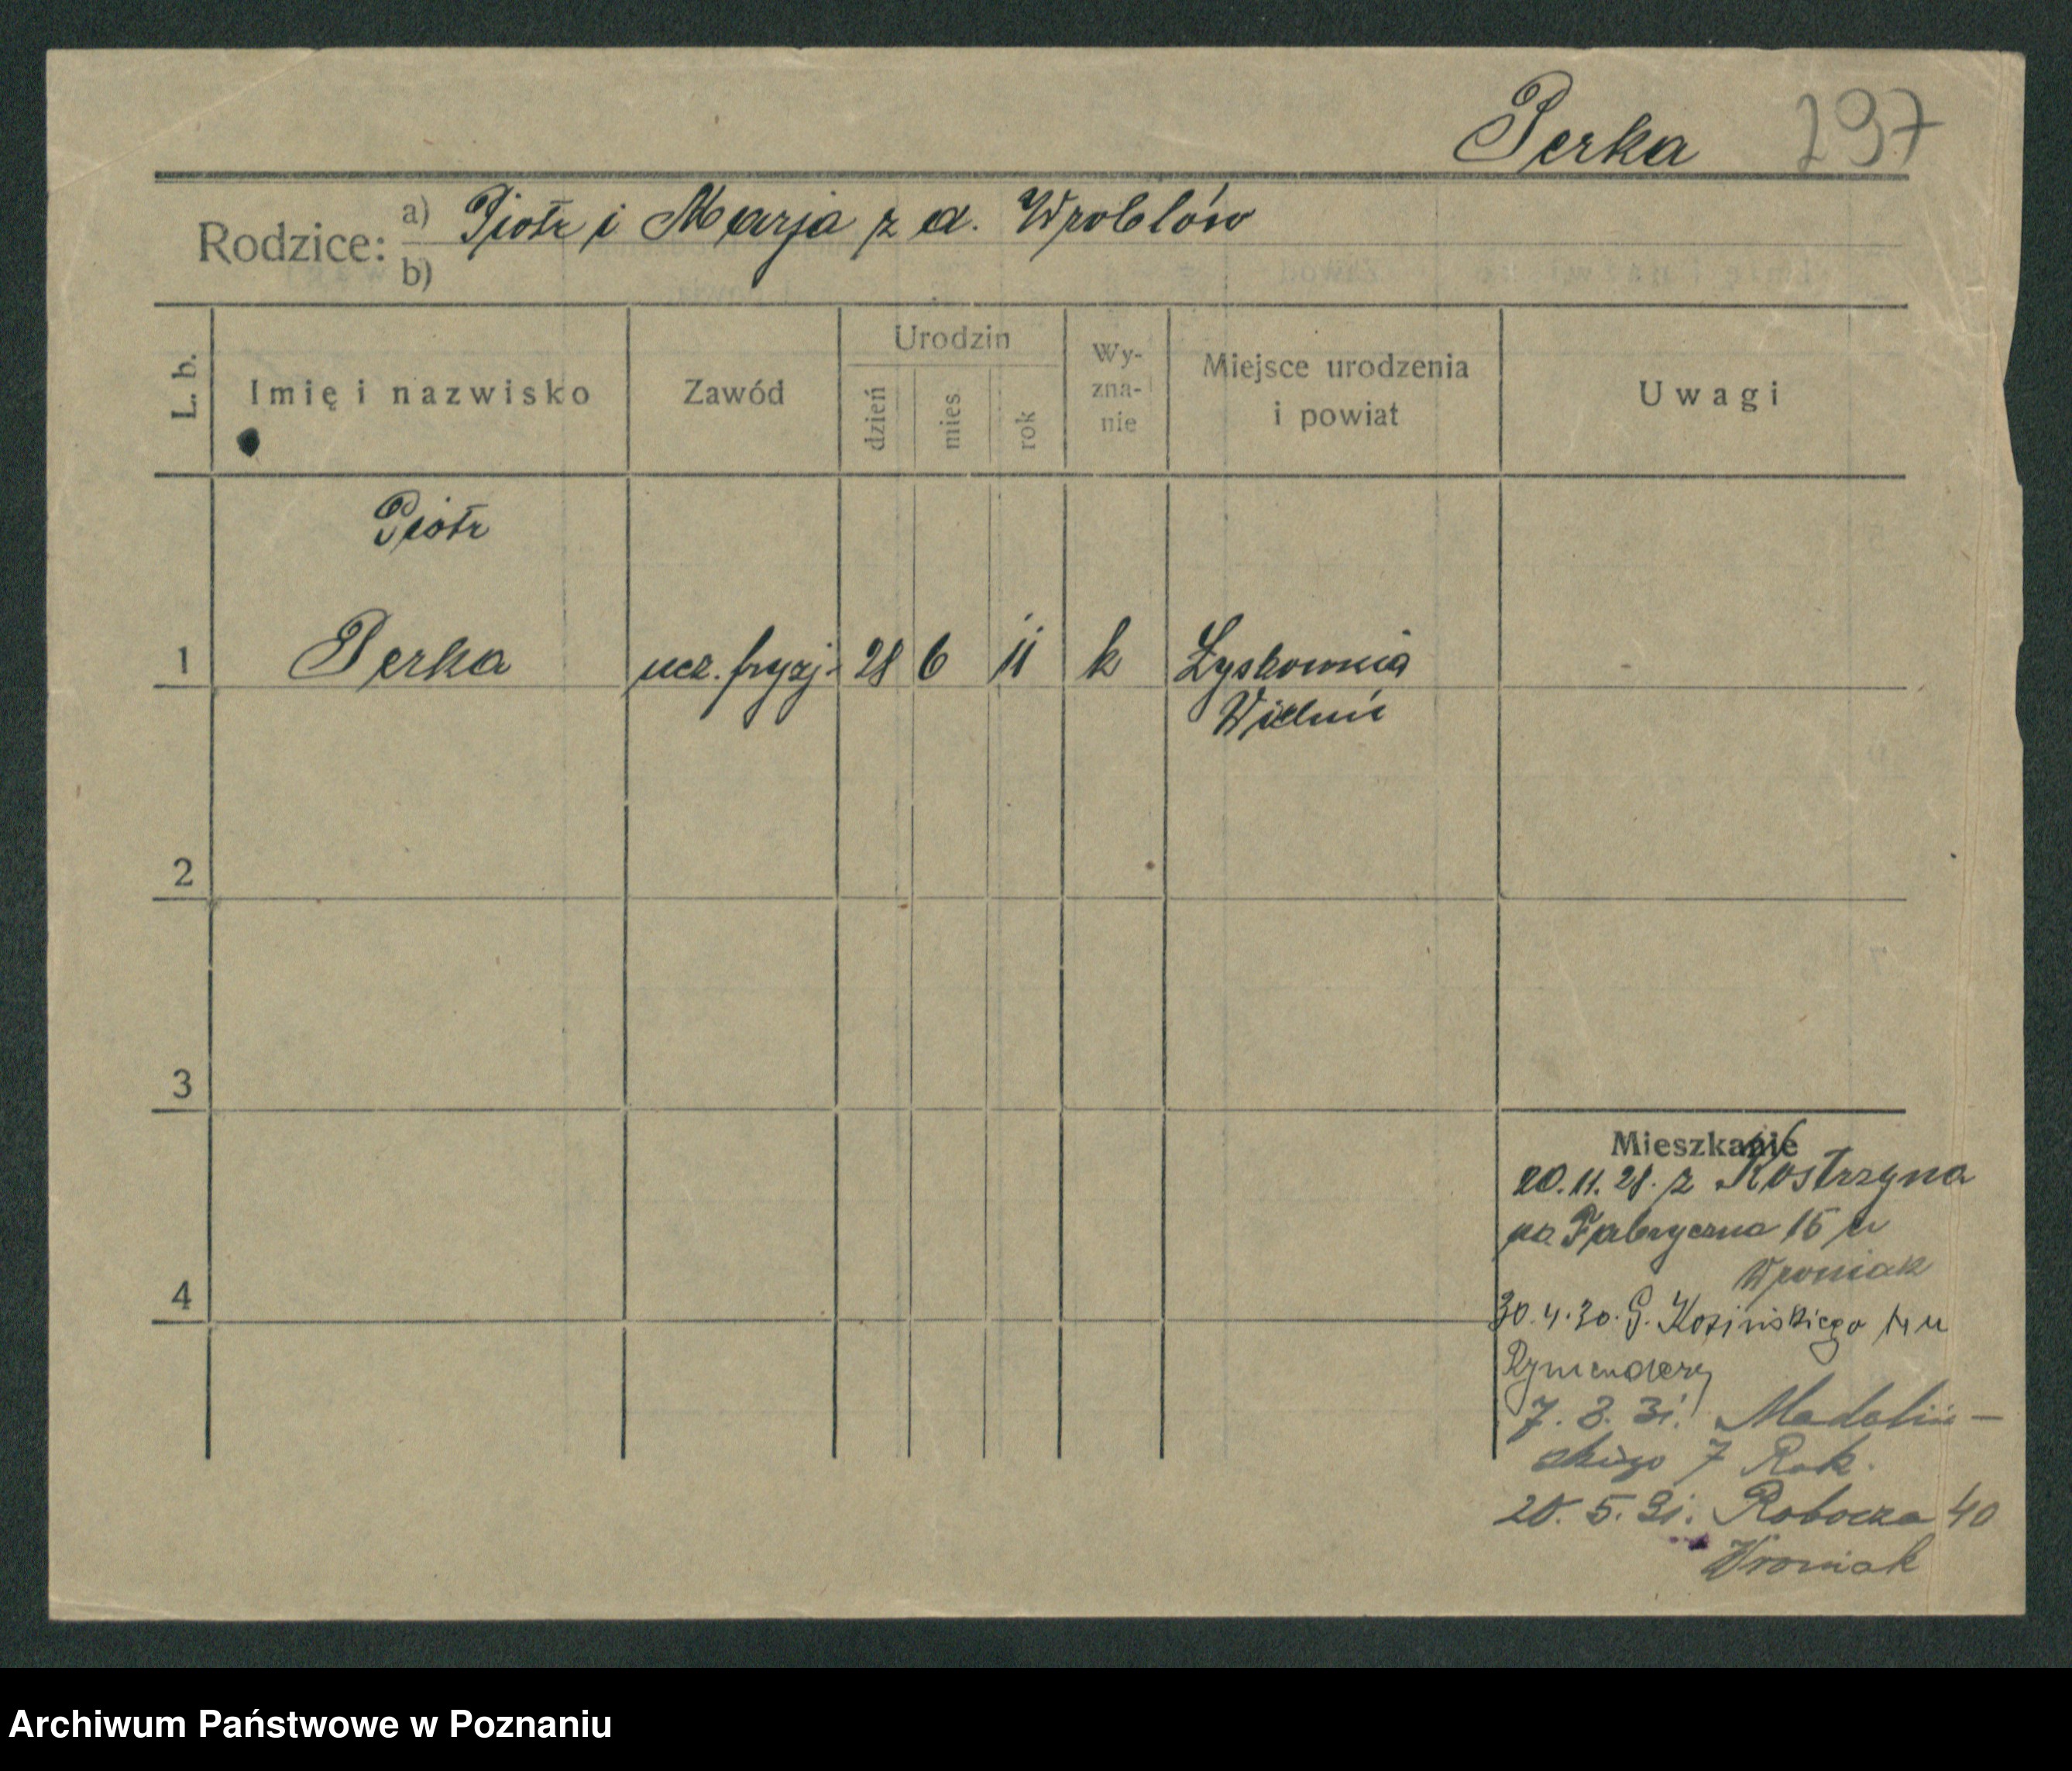 Perka 297
Rodzice: a) Piotr i Marja z d. Wroblów
b)
L. b. Imię i nazwisko Zawód Urodzin dzień mies. rok Wy-zna-nie Miejsce urodzenia i powiat Uwagi
Piotr
1 Perka ucz. fryzj. 28 6 11 k Łyskownia
Wieluń
2
3
Mieszkanie
20.11.28. z Kostrzyna
na Fabryczna 15 u
Wroniak
4
30.4.30. G. Kosińskiego u
7. 3. 31. Madaliń-
skiego 7 Rak.
20. 5. 31. Robocza 40
Wroniak
Archiwum Państwowe w Poznaniu